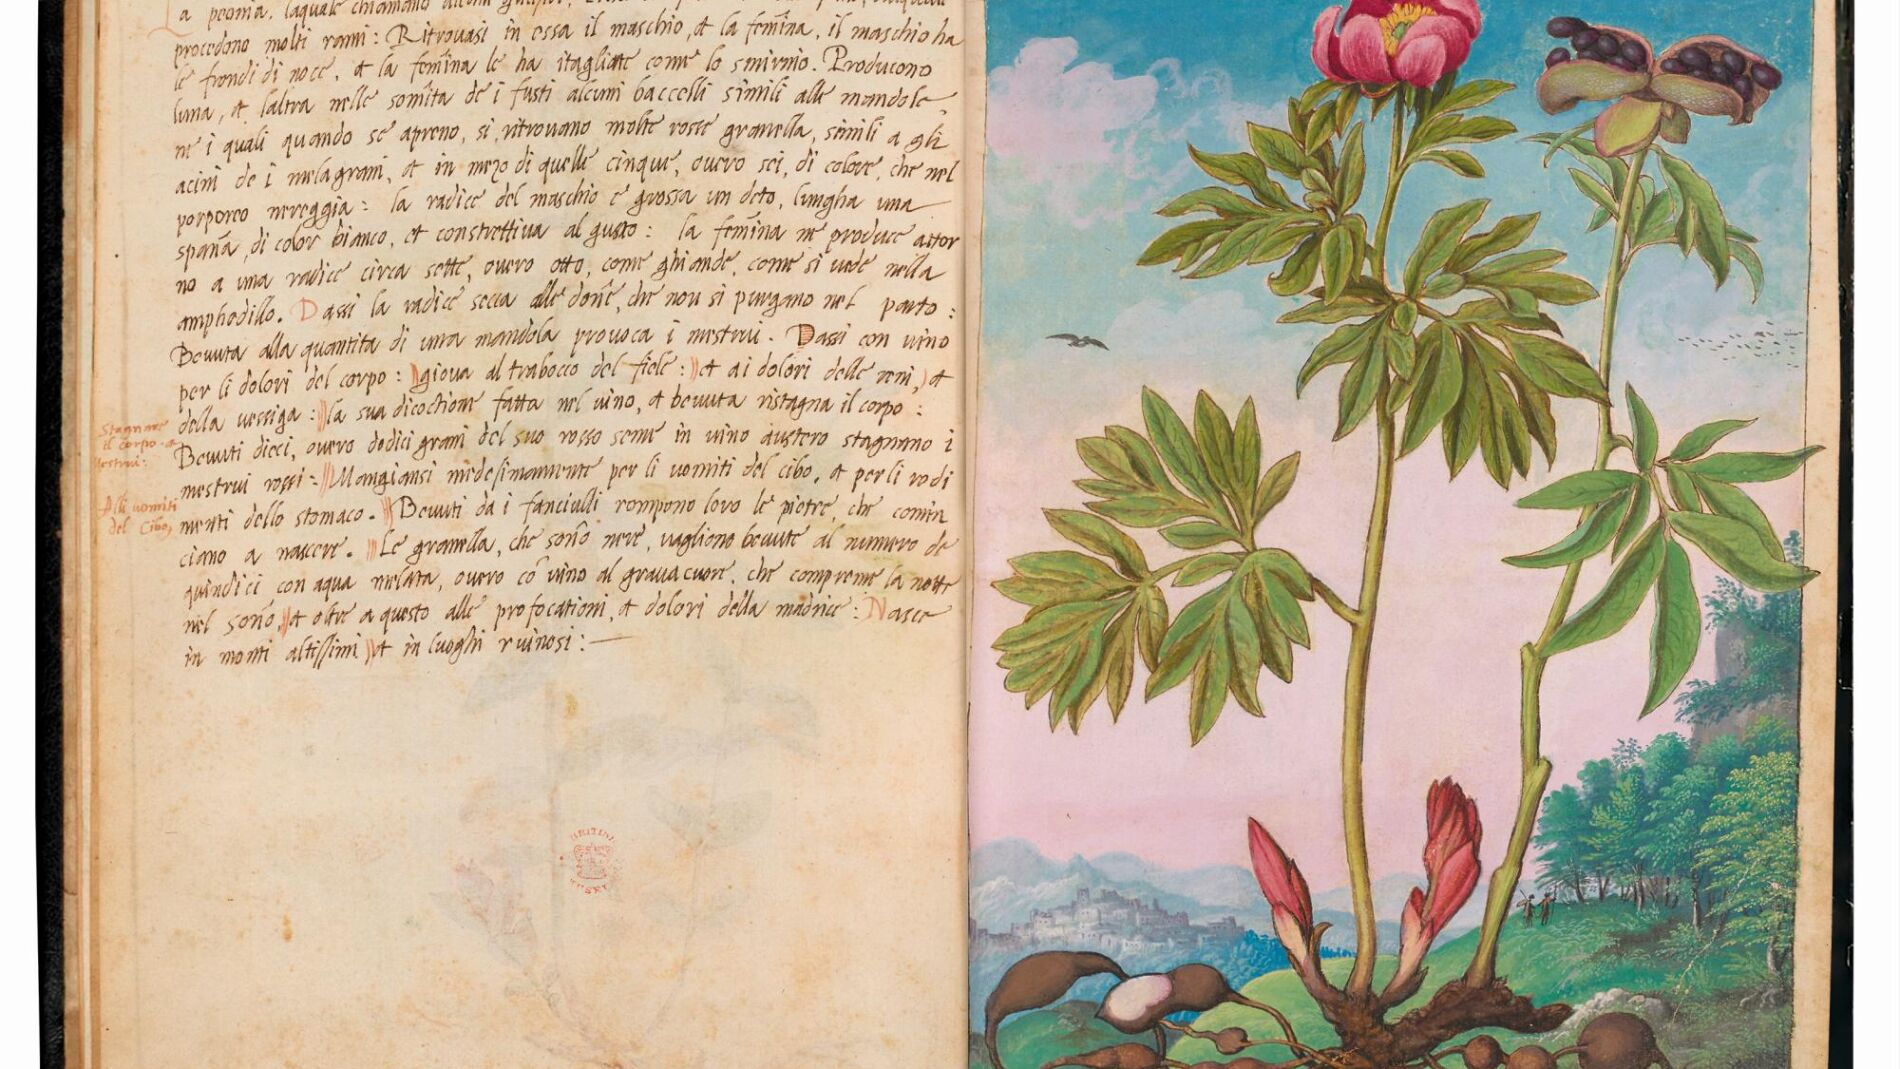 La peonia, laquale chiamano alcuni
procedono molti rami: Ritrovasi in essa il maschio, et la femina, il maschio ha
le frondi di noce, et la femina le ha itagliate come lo smirnio. Producono
luna, et laltra nelle somita de i fusti alcuni baccelli simili alle mandole
ne i quali quando se apreno, si ritrovano molte rosse granella, simili a gli
acini de i melagrani, et in mezo di quelle cinque, overo sei, di colore, che nel
porporeo nereggia: la radice del maschio e grossa un deto, lungha una
spana, di color bianco, et constrettiva al gusto: la femina ne produce attor
no a una radice circa sette, overo otto, come ghiande, come si vede nella
amphodillo. Dassi la radice secca alle done, che non si purgano nel parto:
Bevuta alla quantita di una mandola provoca i mestrui. Dassi con vino
per li dolori del corpo: giova al trabocco del fiele: et ai dolori delle reni, et
della vessiga: la sua dicoctione fatta nel vino, et bevuta ristagna il corpo:
Bevuti dieci, overo dodici grani del suo rosso seme in vino austero stagnano i
mestrui rossi: Mangiansi medesimamente per li vomiti del cibo, et per li rodi
menti dello stomaco. Bevuti da i fanciulli rompono loro le pietre, che comin
ciano a nascere. Le granella, che sono nere, vagliono bevute al numero de
quindici con aqua melata, overo co vino al gravacuore, che compreme la notte
nel sono, et oltre a questo alle profocationi, et dolori della madrice: Nasce
in monti altissimi, et in luoghi ruinosi:
Stagnare
il corpo et
mestrui:
Alli vomiti
del Cibo,